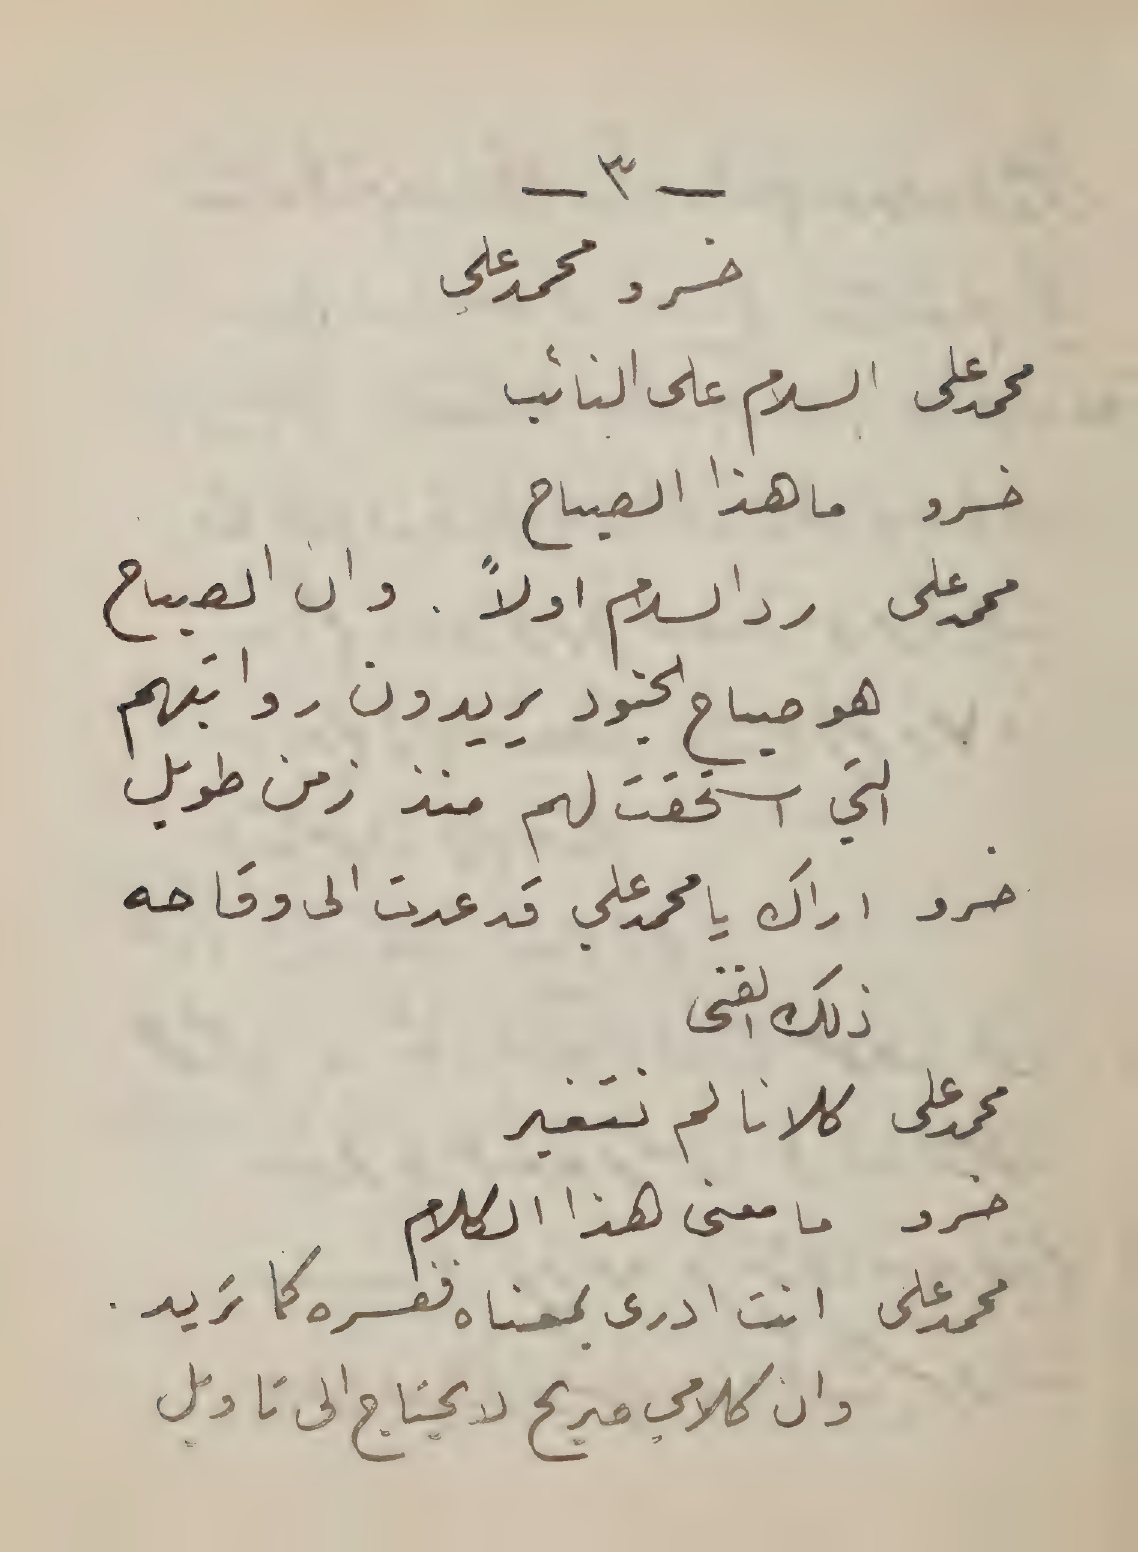 — ٣ —
خسرو محمد علي
محمد على السلام على النائب
خسرو ما هذا الصياح
محمد على رد السلام اولاً . وان الصياح
هو صياح الجنود يريدون رواتبهم
التي استحقت لهم منذ زمن طويل
خسرو اراك يا محمد علي قد عدت الى وقاحه
ذلك الفتى
محمد على كلانا لم نتغير
خسرو ما معنى هذا الكلام
محمد على انت ادرى بمعناه ففسره كما تريد .
وان كلامي صريح لا يحتاج الى تاويل